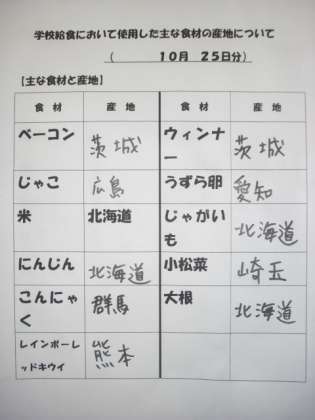 学校給食において使用した主な食材の産地について
（　　　10月　25日分）
【主な食材と産地】
食　材　産　地　食　材　産　地
ベーコン　茨城　ウィンナー　茨城
じゃこ　広島　うずら卵　愛知
米　北海道　じゃがいも　北海道
にんじん　北海道　小松菜　崎玉
こんにゃく　群馬　大根　北海道
レインボーレッドキウイ　熊本